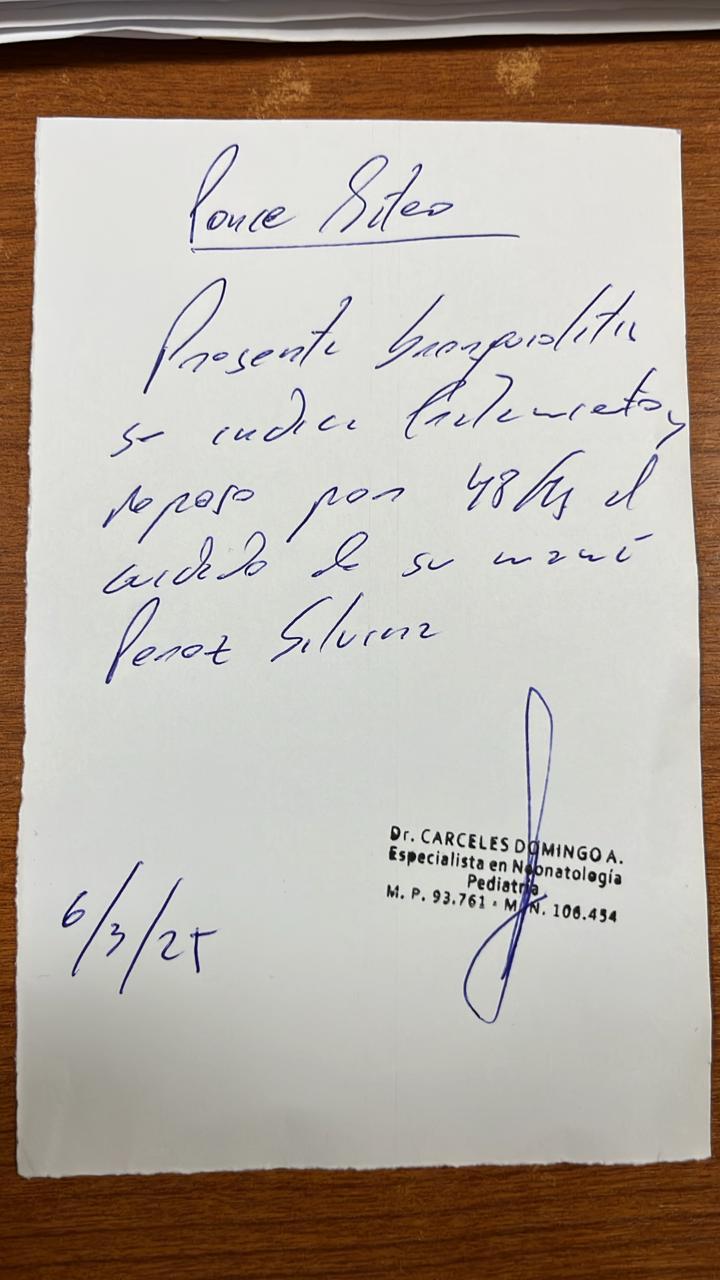 Ponce
Presenta bronquiolitis
se indica tratamiento y
reposo por 48 Hs al
cuidado de su mamá
Perez Silvina
Dr. CARCELES DOMINGO A.
Especialista en Neonatología
Pediatria
M. P. 93.761 - M. N. 106.454
6/3/25